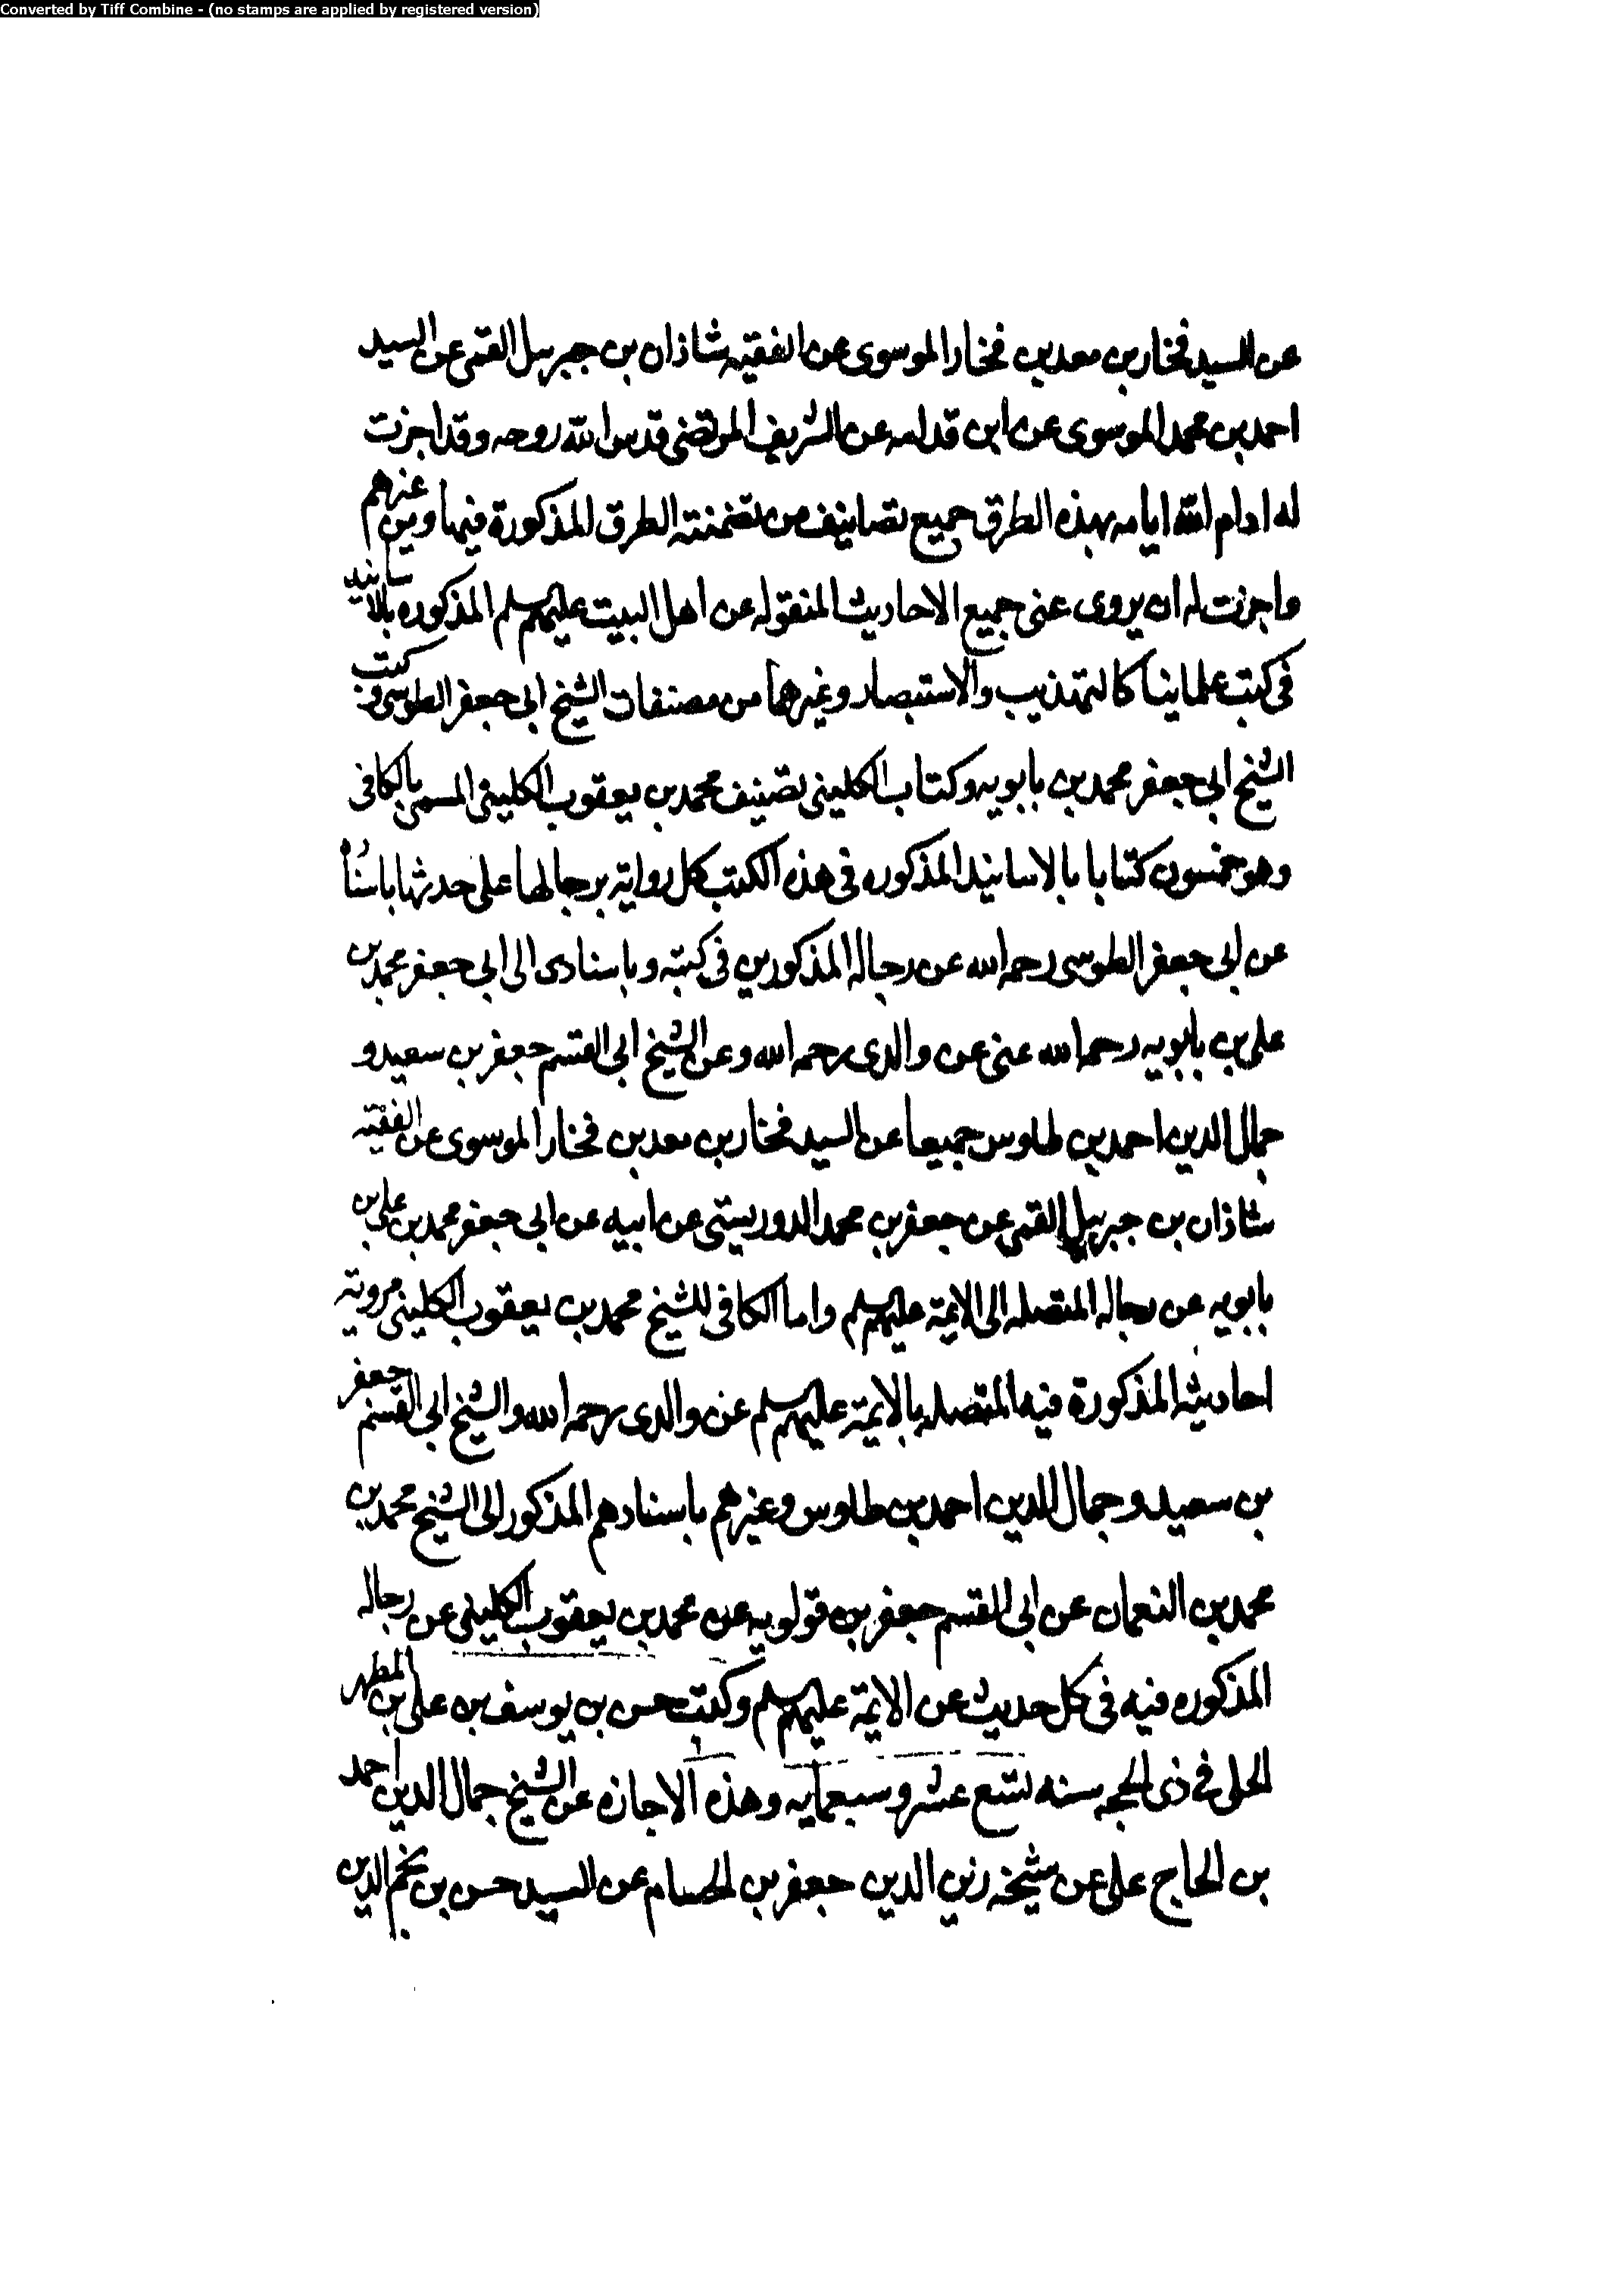 Converted by Tiff Combine - (no stamps are applied by registered version)
عن السيد فخار بن معد بن فخار الموسوى عن الفقيه شاذان بن جبرييل القمى عن السيد
احمد بن محمد الموسوى عن ابن قدامه عن الشريف المرتضى قدس الله روحه وقد اجزت
له ادام الله ايامه بهذه الطرق جميع تصانيف من تضمنته الطرق المذكورة فيها ومن غيرهم
واجزت له ان يروى عنى جميع الاحاديث المنقوله عن اهل البيت عليهم سلم المذكوره بالاسانيد
فى كتب علماينا كالتهذيب والاستبصار وغيرهما من مصنفات الشيخ ابى جعفر الطوسى وكتب
الشيخ ابى جعفر محمد بن بابويه وكتاب الكلينى تصنيف محمد بن يعقوب الكلينى المسمى بالكافى
وهو خمسون كتابا بالاسانيد المذكوره فى هذه الكتب كل رواية برجالها على حدتها باسنادى
عن ابى جعفر الطوسى رحمه الله عن رجاله المذكورين فى كتبه وباسنادى الى ابى جعفر محمد بن
على بن بابويه رحمه الله عنى عن والدى رحمه الله وعن الشيخ ابى القسم جعفر بن سعيد و
جمال الدين احمد بن طاوس جميعا عن السيد فخار بن معد بن فخار الموسوى عن الفقيه
شاذان بن جبرييل القمى عن جعفر بن محمد الدوريستى عن ابيه عن ابى جعفر محمد بن على بن
بابويه عن رجاله المتصله الى الايمة عليهم سلم واما الكافى للشيخ محمد بن يعقوب الكلينى فرويته
احاديثه المذكورة فيه المتصله بالايمة عليهم سلم عن والدى رحمه الله والشيخ ابى القسم جعفر
بن سعيد وجمال الدين احمد بن طاوس وغيرهم باسنادهم المذكور الى الشيخ محمد بن
محمد بن النعمان عن ابى القسم جعفر بن قولويه عن محمد بن يعقوب الكلينى عن رجاله
المذكوره فيه فى كل حديث عن الايمة عليهم سلم وكتب حسن بن يوسف بن على بن المطهر
الحلى في ذى الحجه سنه تسع عشر وسبعمايه وهذه الاجازه عن الشيخ جمال الدين احمد
بن الحاج على عن شيخه زين الدين جعفر بن الحسام عن السيد حسن بن نجم الدين